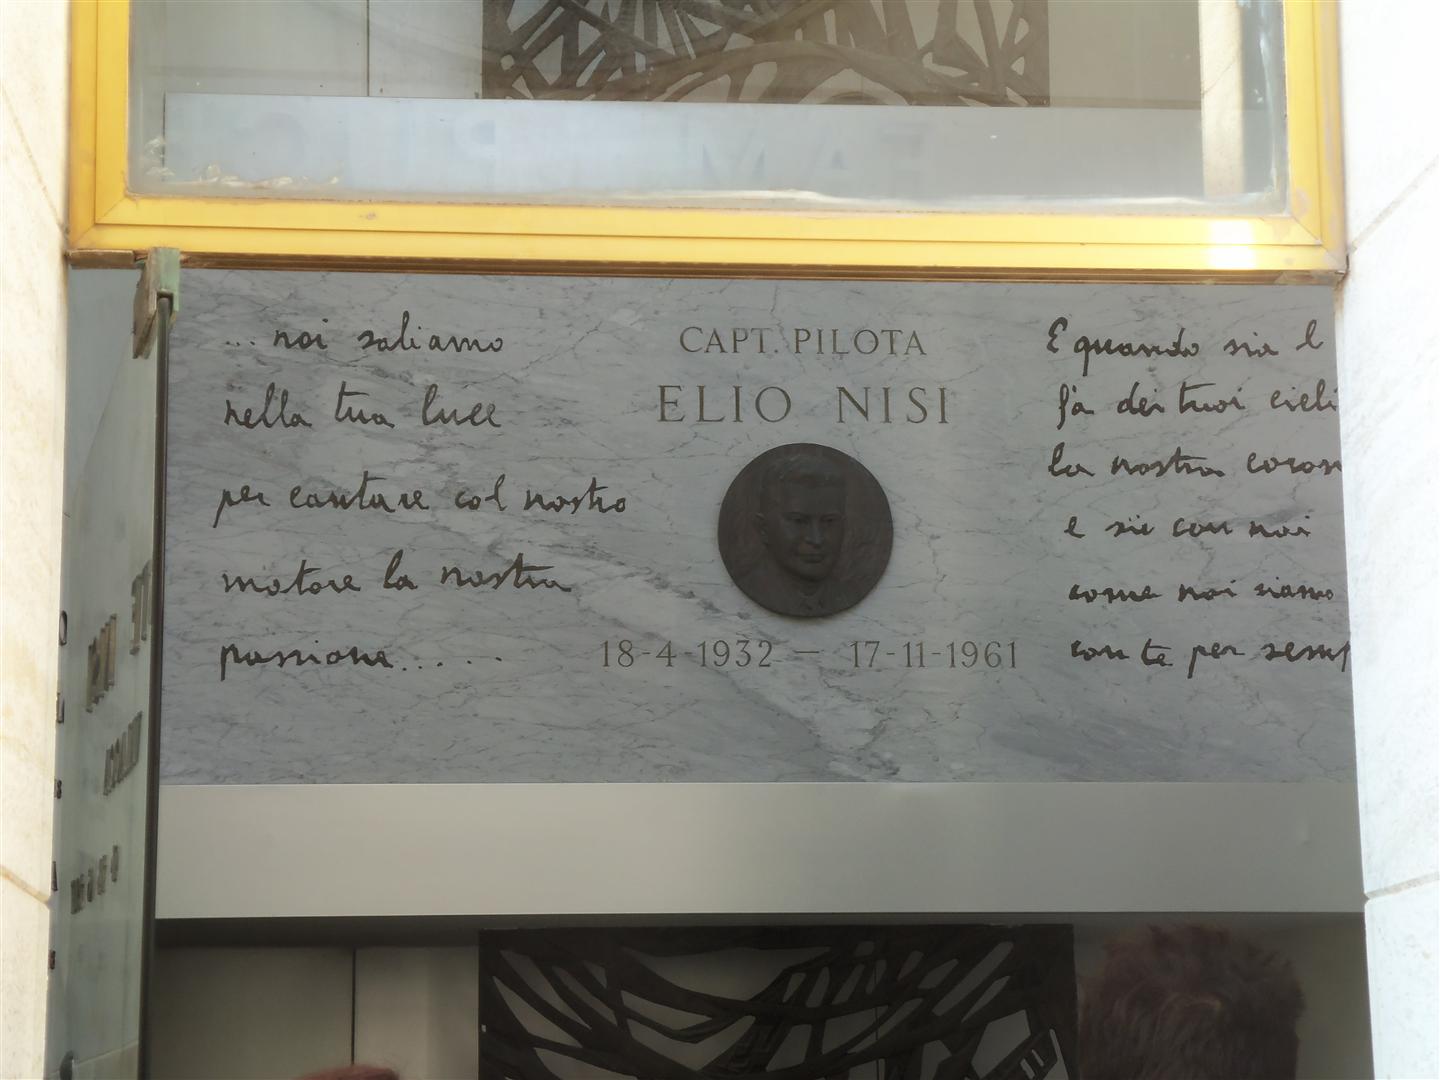 ... noi saliamo
nella tua luce
per cantare col nostro
motore la nostra
passione......
CAPT. PILOTA
ELIO NISI
18-4-1932 — 17-11-1961
E quando sia l
fà dei tuoi cieli
la nostra coron
e sii con noi
come noi siamo
con te per semp